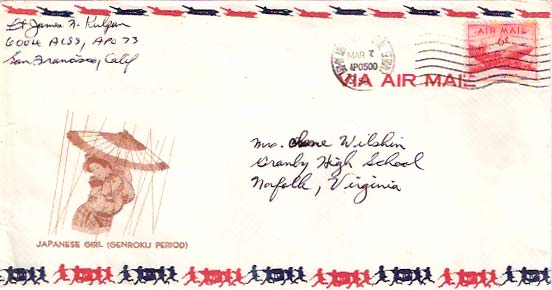 Lt James N. Kulgan
6004 ALSS, APO 73
San Francisco, Calif
MAR 7
APO500
VIA AIR MAIL
AIR MAIL
6¢
Mrs. Wilshin
Granby High School
Norfolk, Virginia
JAPANESE GIRL (GENROKU PERIOD)